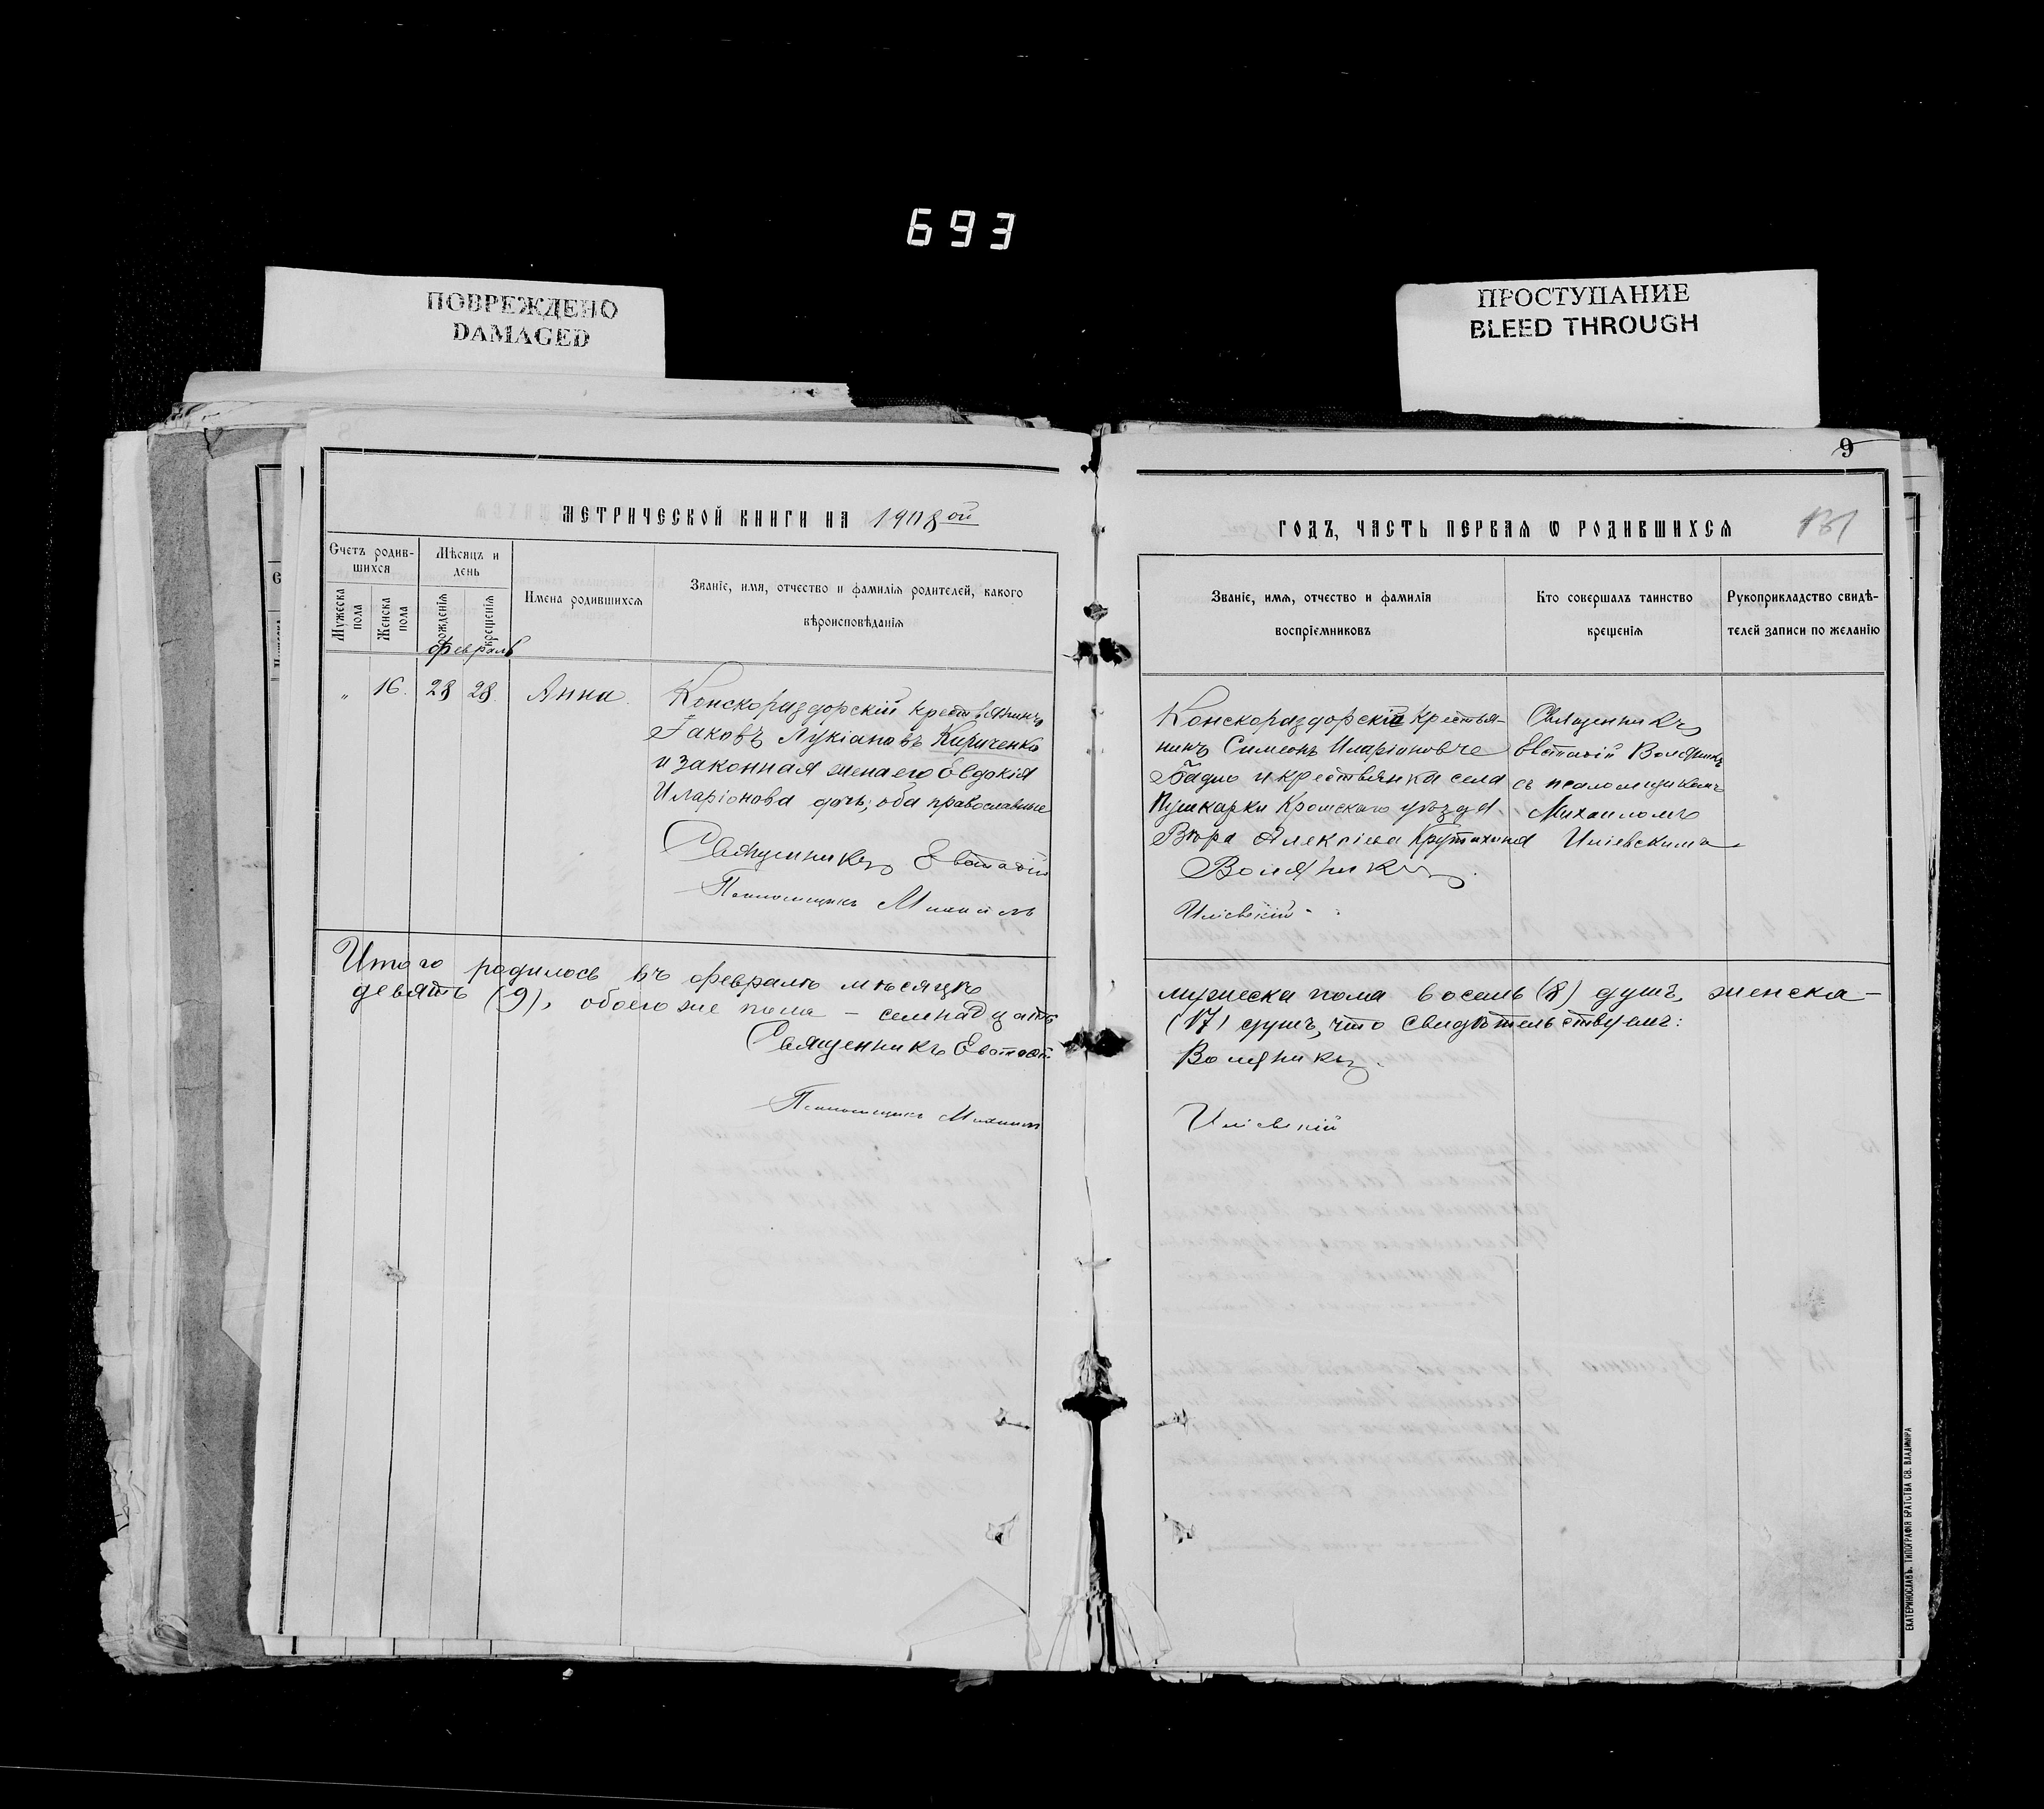 693
ПОВРЕЖДЕНО
DAMAGED
ПРОСТУПАНИЕ
BLEED THROUGH
9
МЕТРИЧЕСКОЙ КНИГИ НА 1908ой
Счетъ родив-
шихся
Мѣсяцъ и
день
Мужеска пола
Женска пола
рожденія
крещенія
Имена родившихся
Званіе, имя, отчество и фамилія родителей, какого
вѣроисповѣданія
февраль
" 16. 28 28. Анна.
Конскораздорскій крестьянинъ
Іаковъ Лукіановъ Кириченко
и законная жена его Евдокія
Иларіонова дочь; оба православные
Священникъ Евстафій
Псаломщикъ Михаилъ
Итого родилось въ февралѣ мѣсяцѣ
девять (9), обоего же пола – семнадцать
Священникъ Евстафій
Псаломщикъ Михаилъ
ГОДЪ, ЧАСТЬ ПЕРВАЯ Ѡ РОДИВШИХСЯ
Званіе, имя, отчество и фамилія
воспріемниковъ
Кто совершалъ таинство
крещенія
Рукоприкладство свидѣ-
телей записи по желанію
Конскораздорскіе крестья-
нинъ Симеонъ Иларіоновъ
и крестьянка села
Пушкарки Кромскаго уѣзда
Вѣра Алексіева Крутихина
Воляникъ.
Иліевскій.
Священникъ
Евстафій Воляникъ
съ псаломщикомъ
Михаиломъ
Иліевскимъ
мужеска пола восемь (8) душъ, женска –
(17) душъ, что свидѣтельствуемъ:
Воляникъ.
Иліевскій
ЕКАТЕРИНОСЛАВЪ. ТИПОГРАФІЯ БРАТСТВА СВ. ВЛАДИМІРА